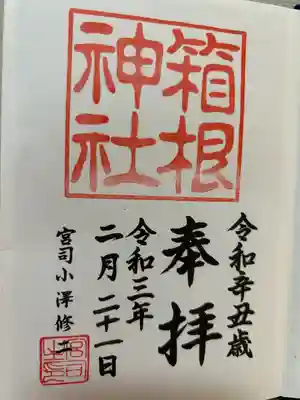 箱根
神社
令和辛丑歳
奉拝
令和三年
二月二十一日
宮司小澤修二